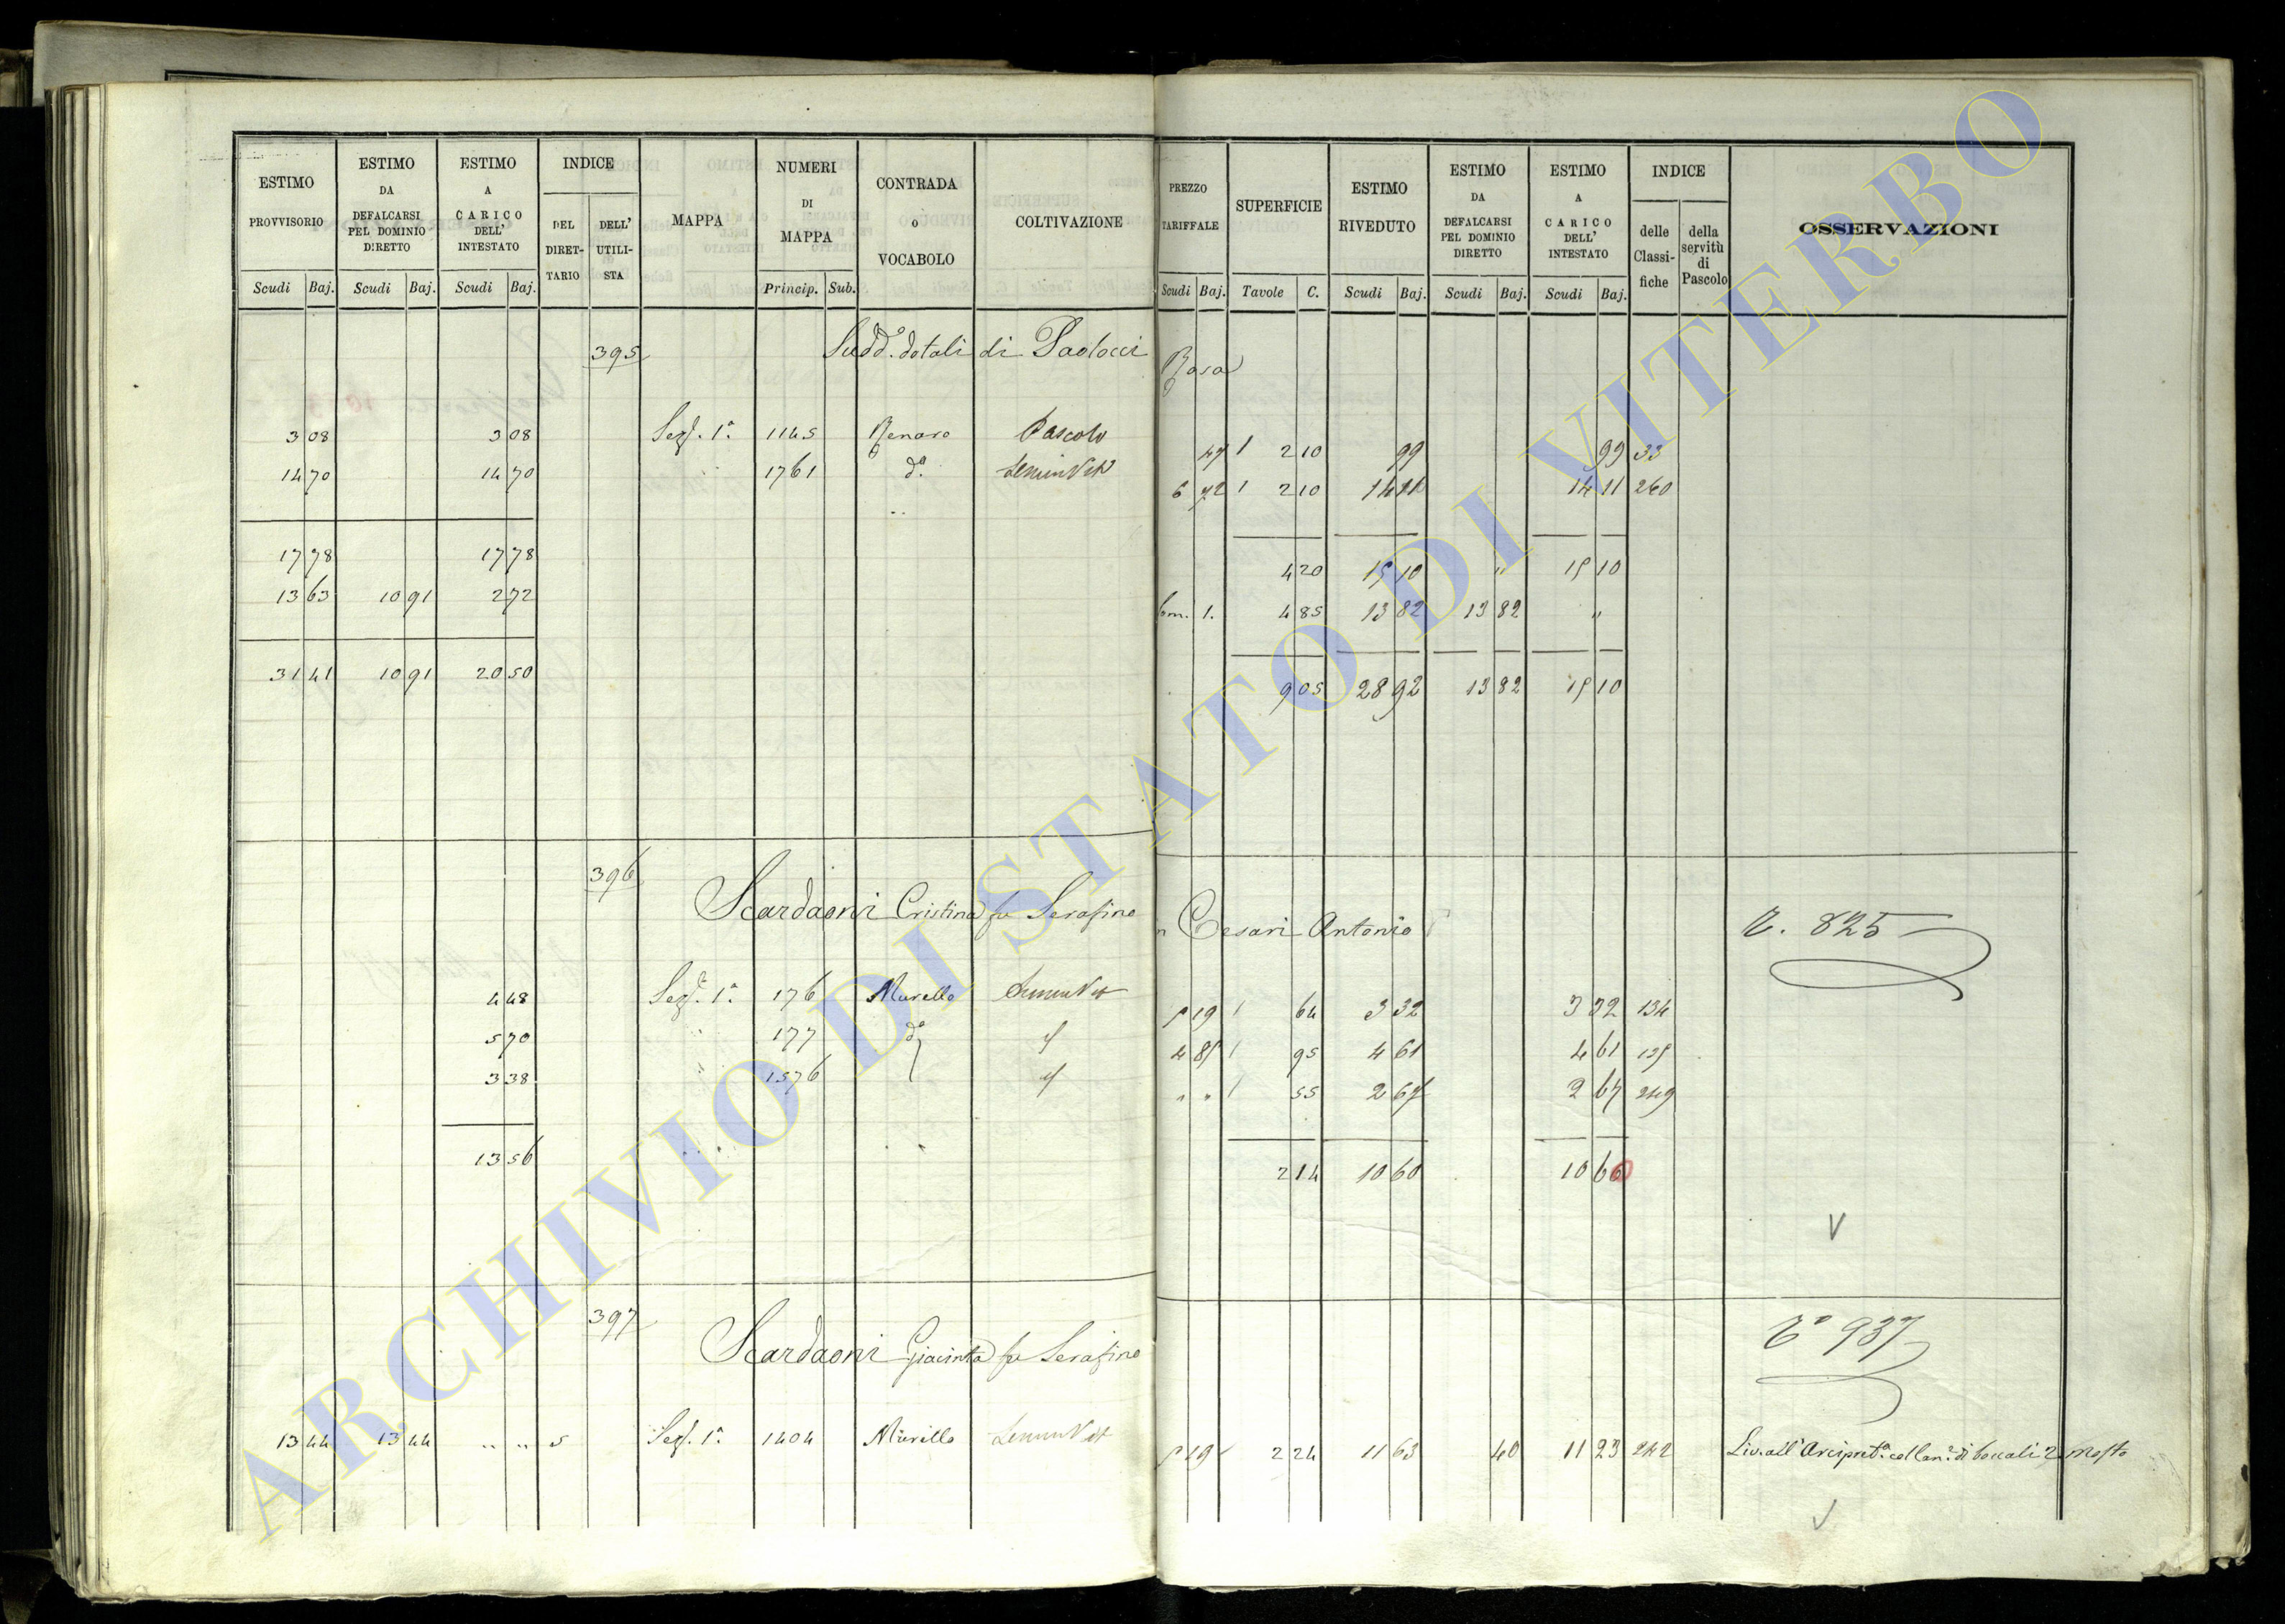 ESTIMO PROVVISORIO Scudi Baj. ESTIMO DA DEFALCARSI PEL DOMINIO DIRETTO Scudi Baj. ESTIMO A CARICO DELL' INTESTATO Scudi Baj. INDICE DEL DIRETTARIO DELL' UTILISTA MAPPA NUMERI DI MAPPA Princip. Sub. CONTRADA o VOCABOLO COLTIVAZIONE PREZZO TARIFFALE Scudi Baj. SUPERFICIE Tavole C. ESTIMO RIVEDUTO Scudi Baj. ESTIMO DA DEFALCARSI PEL DOMINIO DIRETTO Scudi Baj. ESTIMO A CARICO DELL' INTESTATO Scudi Baj. INDICE delle Classifiche della servitù di Pascolo OSSERVAZIONI
395 dotali di Paolocci Rosa
3 08 3 08 Sez. 1ª 1145 Pascolo 47 1 2 10 99 99 33
14 70 14 70 1761 dº SeminVit 6 72 1 2 10 14 11 14 11 260
17 78 17 78 4 20 15 10 " 15 10
13 63 10 91 2 72 1. 4 85 13 82 13 82 "
31 41 10 91 20 50 9 05 28 92 13 82 15 10
396 Scardaoni Cristina fu Serafino in Cesari Antonio
V. 825
4 48 Sez. 1ª 176 Murello SeminVit 5 19 1 64 3 32 3 32 134
5 70 177 dº 4 85 1 95 4 61 4 61 135
3 38 1576 " " 1 55 2 67 2 67 249
13 56 2 14 10 60 10 60
V
397 Scardaoni Giacinta fu Serafino
Vº 937
13 44 13 44 " " 5 Sez. 1ª 1404 Murello SeminVit 5 19 2 24 11 63 40 11 23 242 Liv. all' Arcipret. di boccali 2 Mosto
V
ARCHIVIO DI STATO DI VITERBO